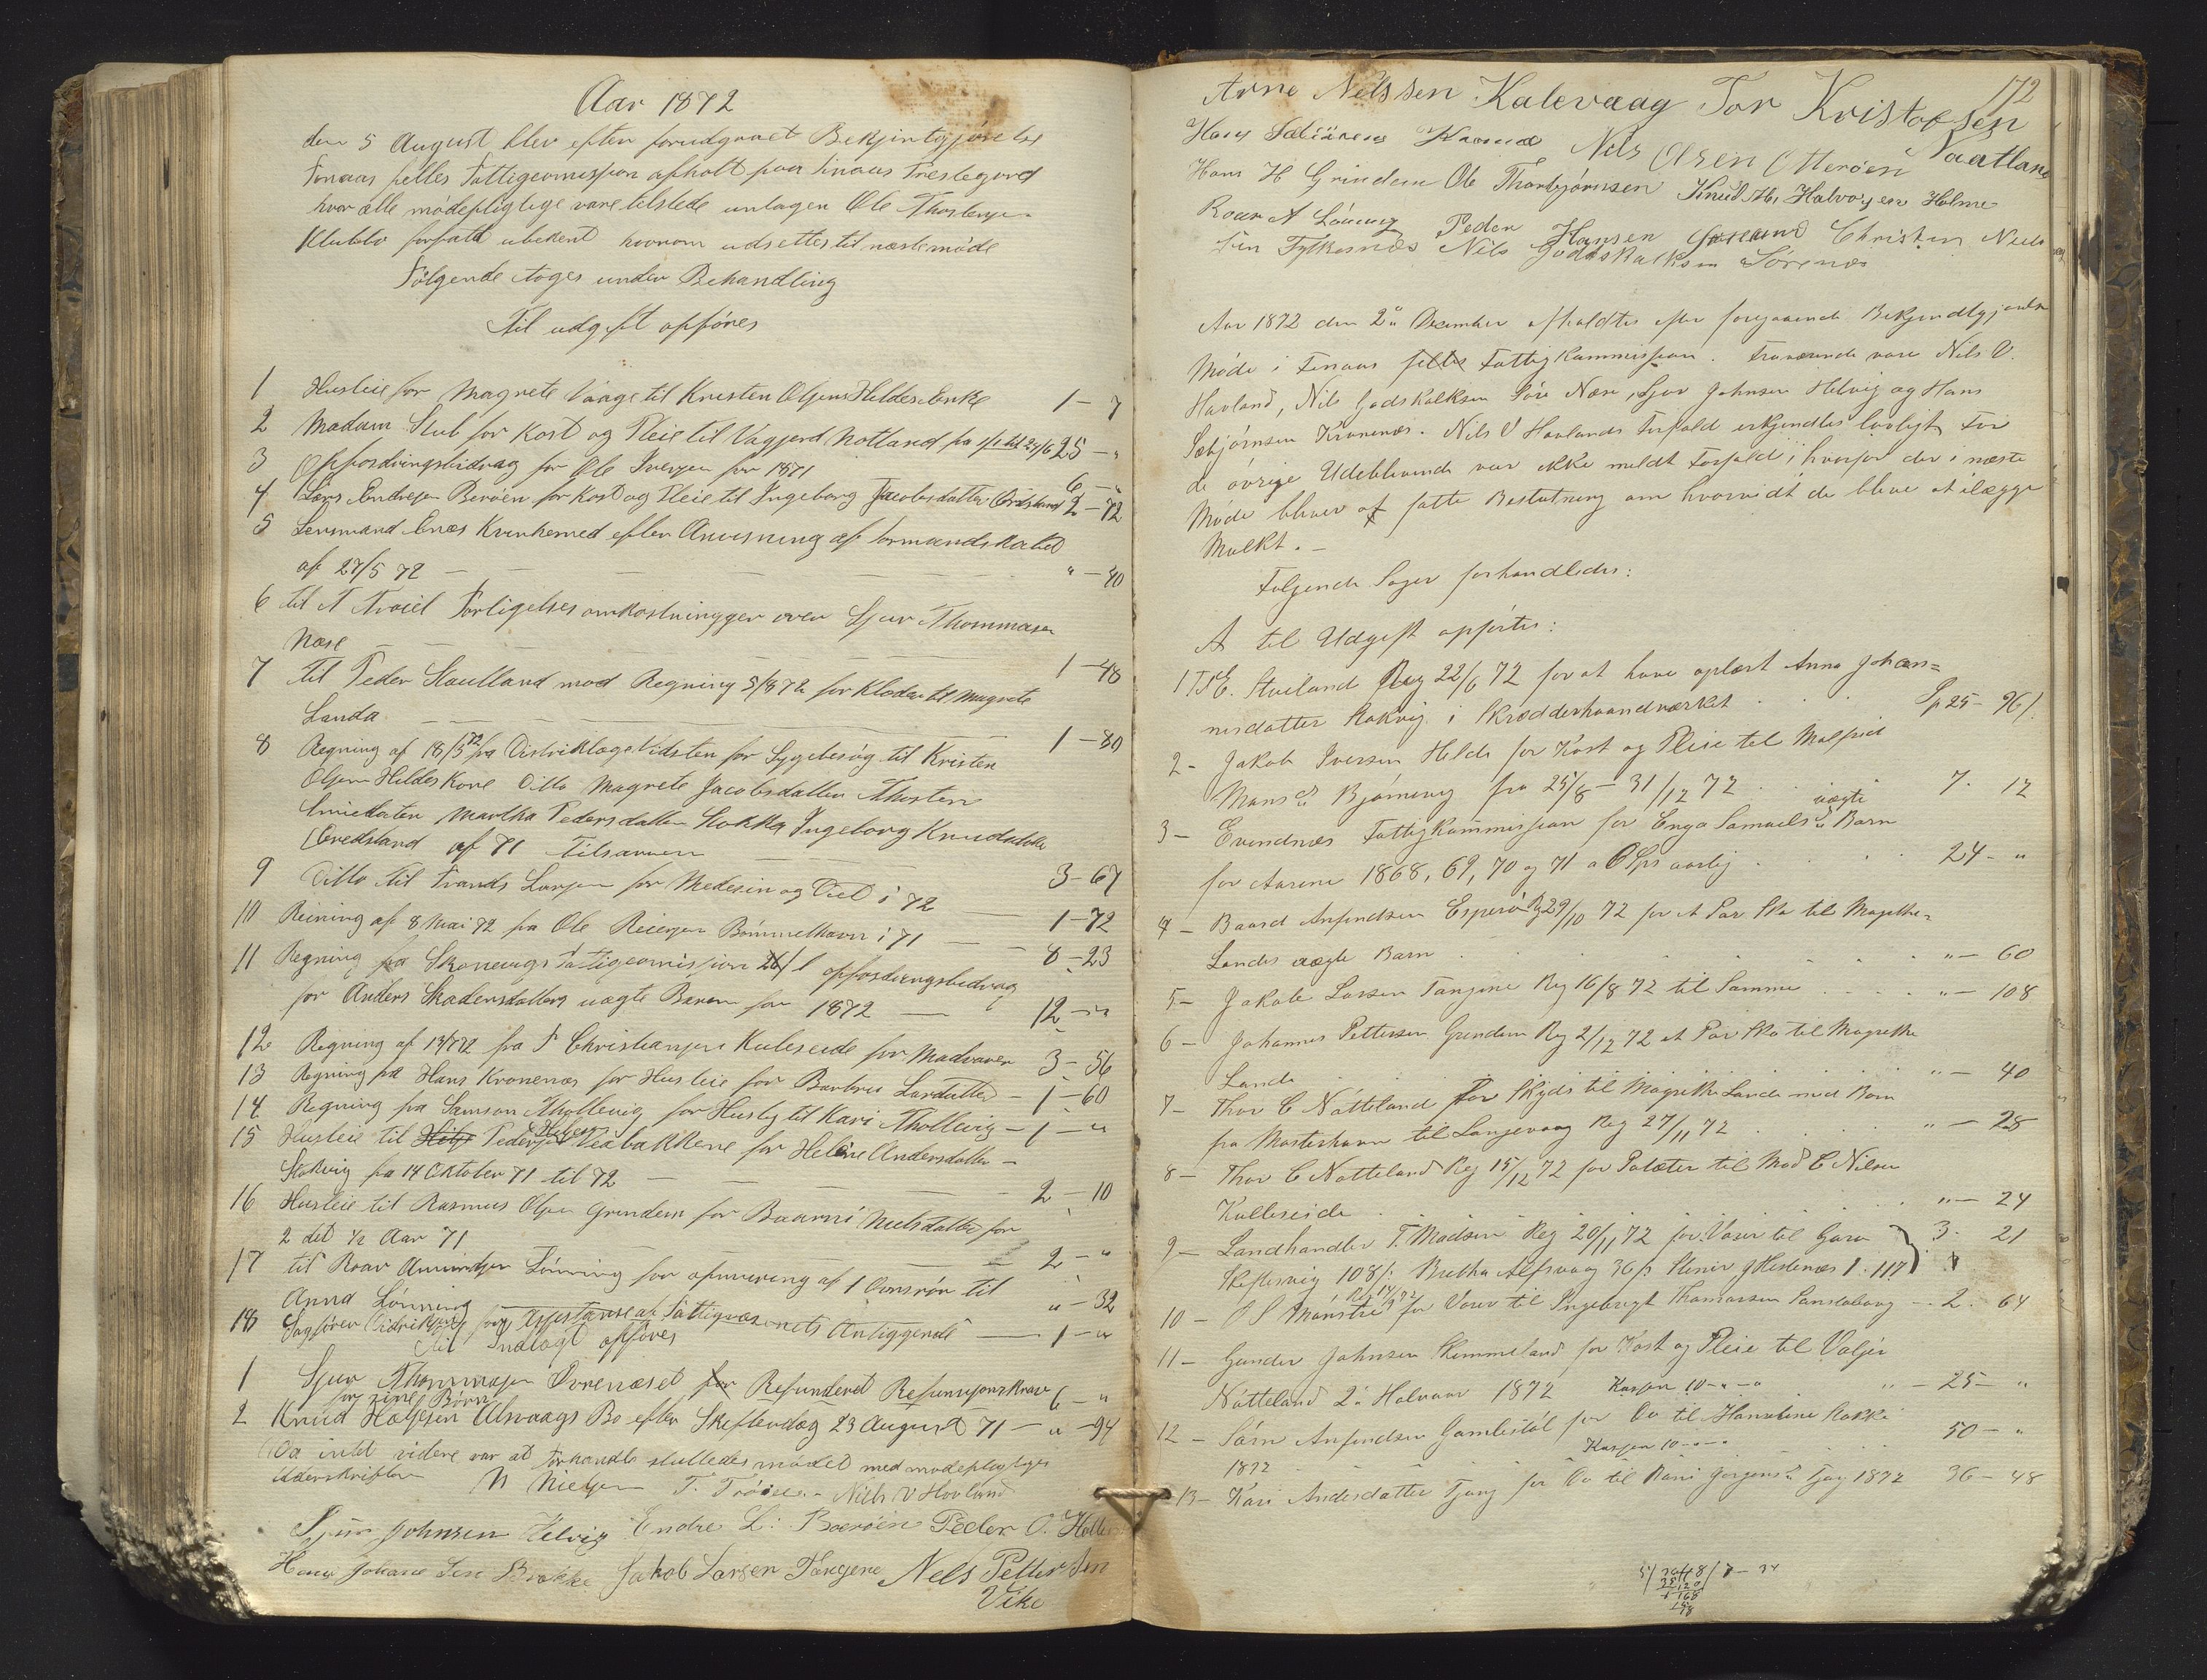 Aar 1872
den 5 August blev efter forudgaaet Bekjentgjørelse
Finaas felles Fattigcomission afholt paa Finaas Prestegord
hvor alle mødepligtige vare tilstede untagen Ole Thorsensen
Klubbo forfald ubekent hvorom udsettes til neste møde
Følgende toges under Behandling
Til udgift opføres
1 Husleie for Magnete Vaage til Kristen Olsens Heldes Enke 1 - 7
2 Madam Stub for Kost og Pleie til Vagjerd Notland fra til 27/6 25 - "
3 Opfosdringsbidrag for Ole Iversen for 1871 6 - "
4 Lars Endresen Berøen for Kost og Pleie til Ingeborg Jacobsdatter 2 - 72
5 Lensmand Enæs Kvinherred efter Anvisning af formandskabet
af 27/5 72 — " - 40
6 til N Troiel Forligelsesomkostningger over Sjur Thommasen
Næse — 1 - 48
7 til Peder Staulland mod Regning 5/8 72 for Kloder til Magnete
Landa — 1 - 80
8 Regning af 18/5 72 fra Distriktlæge Vidsten for Sygebesøg til Kristen
Olsen Heldes Kone Ditto Magnete Jacobsdatter Thosten
Martha Pedersdatter Stokka Ingeborg Knudsdatter
af 71 tilsamen 3 - 67
9 Ditto til Trands Larsen for Medesin og Diet i 72 — 1 - 72
10 Reining af 8 Mai 72 fra Ole Reiersen Bømmelhavn i 71 — 8 - 23
11 Regning fra Skonevigs Fattigcomission opfosdringsbidrag
for Anders Skadensdatters uægte Baren for 1872 — 12 - "
12 Regning af 13/7 72 fra P Christiansen Kuleseide for Madvarer 3 - 56
13 Regning fra Hans Kronenæs for Husleie for Barbru Larsdatter - 1 - 60
14 Regning fra Samson Thollevig for Husly til Kari Thollevig - 1 - "
15 Husleie til Peder Leabakkene for Heline Andersdatter -
Stokvig fra 14 Oktober 71 til 72 — 2 - 10
16 Husleie til Rasmus Olsen Grindem for Baarni Nielsdatter for
2 det ½ Aar 71 — 2 - "
17 til Roar Amundsen Lønning for opmuring af 1 Omsrøn til
Anna Lønning " - 32
18 Sagfører Didriksen for Assistanse af Fattigvæsenets Anliggende — 1 - "
til Indtægt opføres
1 Sjur Thommasen Øvrenæset Refunderet Refunsjonskrav 6 - "
for sine Børn
2 Knud Holjesen Alsvaags Bo efter Skeftendæg 23 August 71 - " - 94
Da intet videre var at forhandle sluttedes mødet med mødepligtiges
Underskrifter N Nielsen T. Trøiel. Niels V Hovland
Sjur Johnsen Helvig Endre L: Bærøen Peder O. Holle
Hans Johanesen Brakke Jakob Larsen Tangene Nels Pettersen
Vike
172
Arne Nilssen Kalevaag Tor Kristofsen
Naatland
Hans Sæbiørens Kronnæ Nils Olsen Otterøen
Hans H Grindem Ole Thorbjørnsen Knud Ms Halvorsen Holme
Roar A Lønning Peder Hansen Christen Niels
sen Fylkesnæs Nils Godskalksen Sørenæs
Aar 1872 den 2den December afholdtes efter foregaaende Bekjendtgjørelse
Møde i Finaas felles Fattigkommission. Fraværende vare Nils V.
Hovland, Nils Godskalksen Søre Næse, Sjur Johnsen Helvig og Hans
Sæbjørnsen Kronenæs. Nils V Hovlands Forfald erkjendtes lovligt. For
de øvrige Udeblivende var ikke meldt Forfald, hvorfor der i næste
Møde bliver at fatte Beslutning om hvorvidt de blive at ilægge
Mulkt. -
Følgende Sager forhandledes:
A til Udgift opførtes:
1 T. E. Stueland Reg 22/6 72 for at have oplært Anna Johan=
nesdatter Stokvig i Skrædderhaandværket . . Sp 25 - 96 /.
2 - Jakob Iversen Helde for Kost og Pleie til Malfrid
Monsdtr Bjørnevig fra 25/8 - 31/12 72 . 7. 12
3 - Evendnæs Fattigkommission for Enga Samuelsdtr uægte Barn
for Aarene 1868, 69, 70 og 71 a 6 Sps aarlig . . 24 - "
4 - Baard Anfindsen Esperø Rg 29/10 72 for et Par Sko til Magrethe
Landes uægte Barn . . . " - 60
5 - Jakob Larsen Tangene Reg 16/8 72 til Samme . . . " - 108
6 - Johannes Pettersen Grindem Reg 2/12 72 et Par Sko til Magrethe
Lande . . . " - 40
7 - Thor C Nøtteland for Skyds til Magrethe Lande med Barn
fra Mosterhavn til Langevaag Reg 27/11 72 . . " - 28
8 - Thor C Nøtteland Reg 15/12 72 for Potæter til Mad C Nilsen
Kulleseide . . . " - 24
9 - Landhandler T. Madsen Reg 20/11 72 for Varer til Guro 3. 21
108 /. Brethe Alfsvaag 36 /. 1. 117
10 - O S Mønstre Reg for Varer til Ingebrigt Thomassen - 2. 64
11 - Gunder Johnsen Kimmeland for Kost og Pleie til Valgjer
Nøtteland 2det Halvaar 1872 Kassen 10 - " - " " - 25 - "
12 - Søren Anfindsen Gamlestøl for Do til Hanseline Rokke
1872 Kassen 10 - " - " . . 50 - "
13 - Kari Andersdatter Tjong for Do til Kari Jørgensdtr Tjong 1872 36 - 48